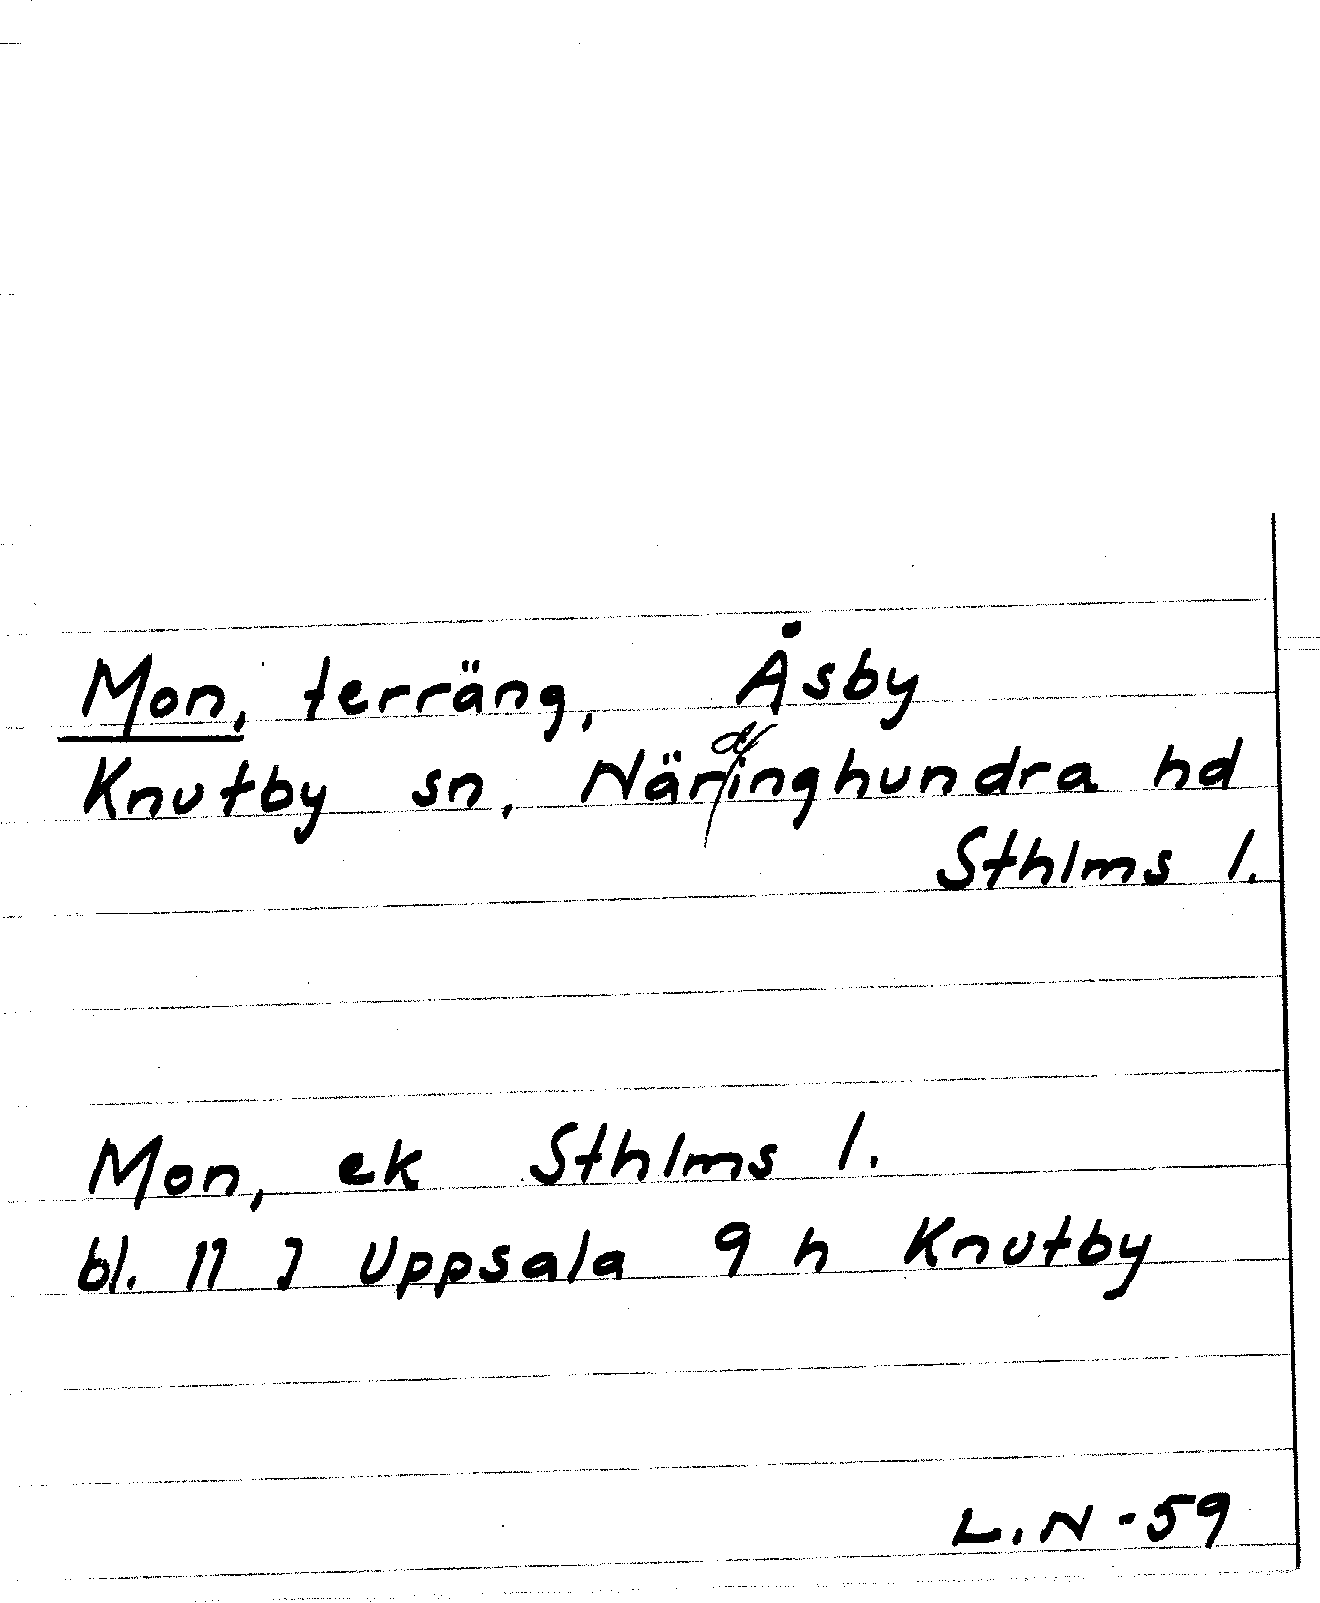 Mon, terräng, Åsby
Knutby sn, Närdinghundra hd
Sthlms l.
Mon, ek Sthlms l.
bl. 11 J Uppsala 9 h Knutby
L.N -59